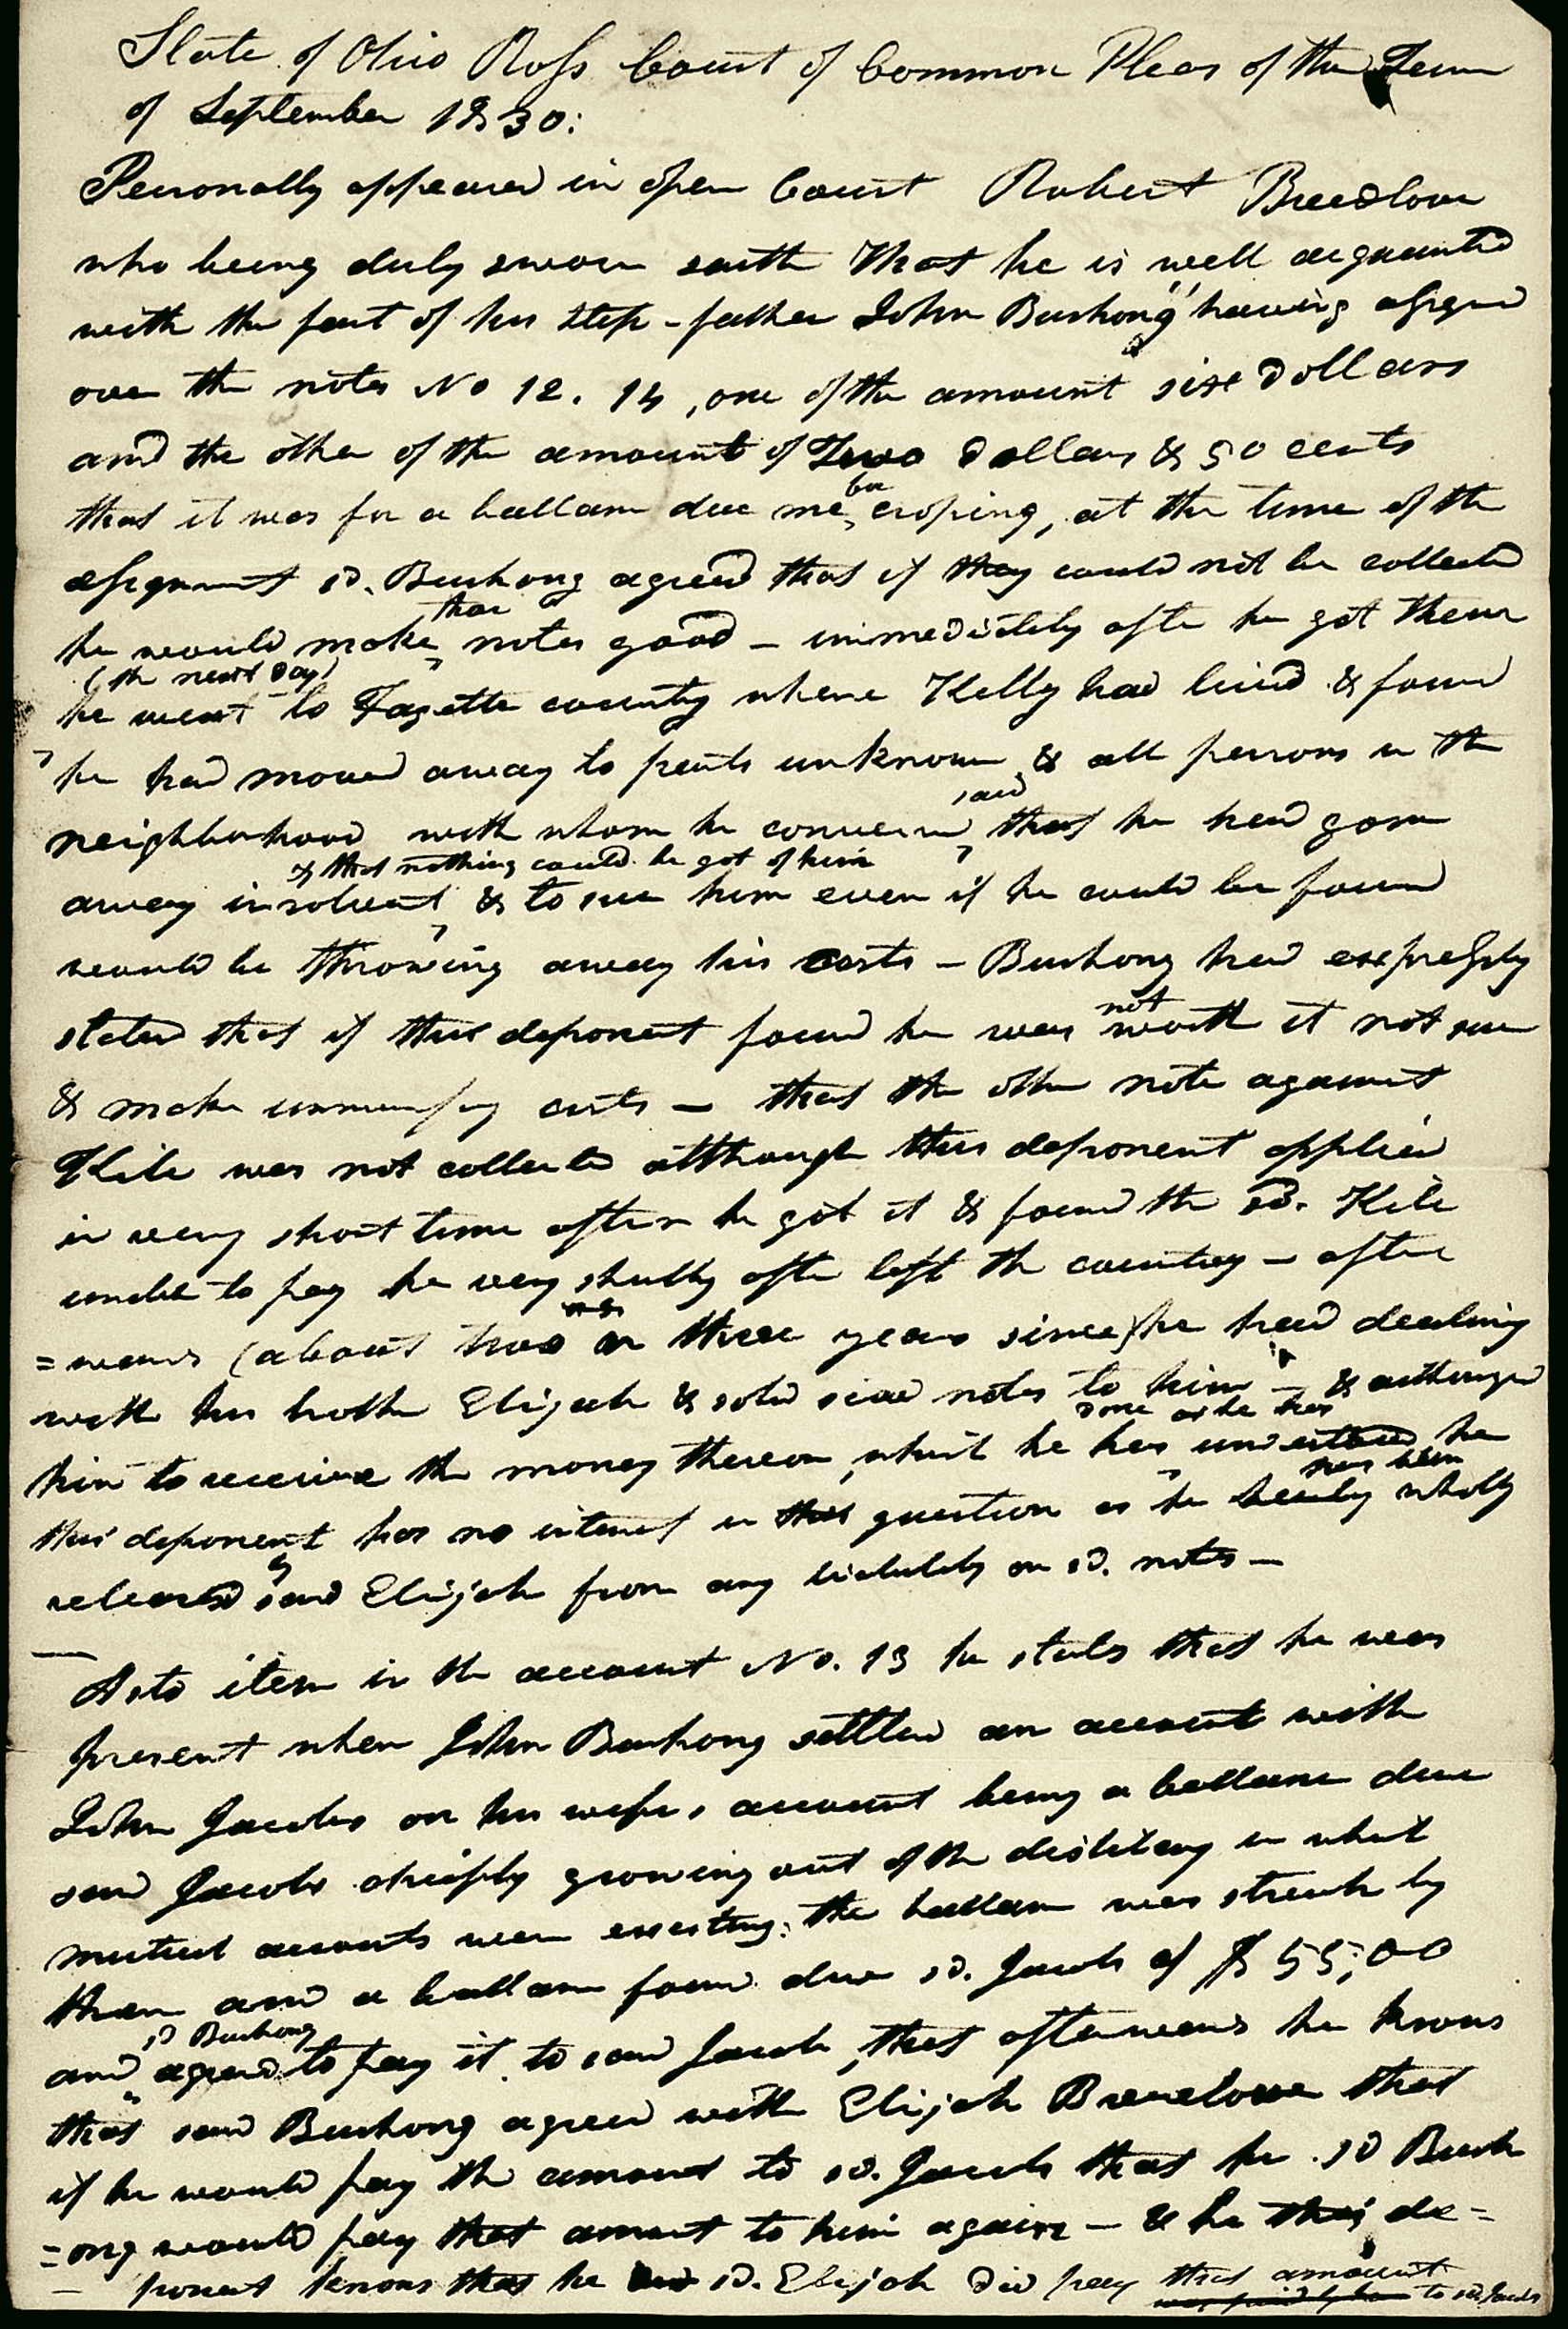 State of Ohio Ross Court of Common Pleas of the Term
of September 1830:
Personally appeared in open Court Robert Breedlove
who being duly sworn saith that he is well acquainted
with the fact of his step-father John Bushong having assigned
over the notes No 12. 14, one of the amount six Dollars
and the other of the amount of Two Dollars & 50 cents
that it was for a ballance due me for croping, at the time of the
assignment sd. Bushong agreed that if they could not be collected
he would make those notes good - immediately after he got them
(the next day)
he went to Fayette county where Kelly had lived & found
he had moved away to parts unknown & all persons in the
said
neighborhood with whom he conversed that he had gone
& that nothing could be got of him
away insolvent & to sue him even if he could be found
would be throwing away his costs - Bushong had expressly
stated that if this deponent found he was not worth it not sue
& make unnecessary costs - that the other note against
Kile was not collected although this deponent applied
in very short time after he got it & found the sd. Kile
unable to pay he very shortly after left the country - after
=wards (about two or three years since) he had dealing
with his brother Elijah & sold said notes to him - & authorized
done as he has
him to receive the money thereon, which he has understood he
has been
this deponent has no interest in this question as he wholly
released by said Elijah from any liability on sd. notes -
As to item in the account No. 13 he states that he was
present when John Bushong settled an account with
John Jacobs on his wife's account being a ballance due
said Jacobs chiefly growing out of the distilery in which
mutual accounts were existing: the ballance was struck by
them and a ballance found due sd. Jacobs of $55,00
sd Bushong
and agreed to pay it to said Jacobs, that afterwards he knows
that said Bushong agreed with Elijah Breedlove that
if he would pay the amount to sd. Jacobs that he sd Bush
=ong would pay that amount to him again - & he this de=
ponent knows that he sd. Elijah did pay that amount
to sd. Jacobs